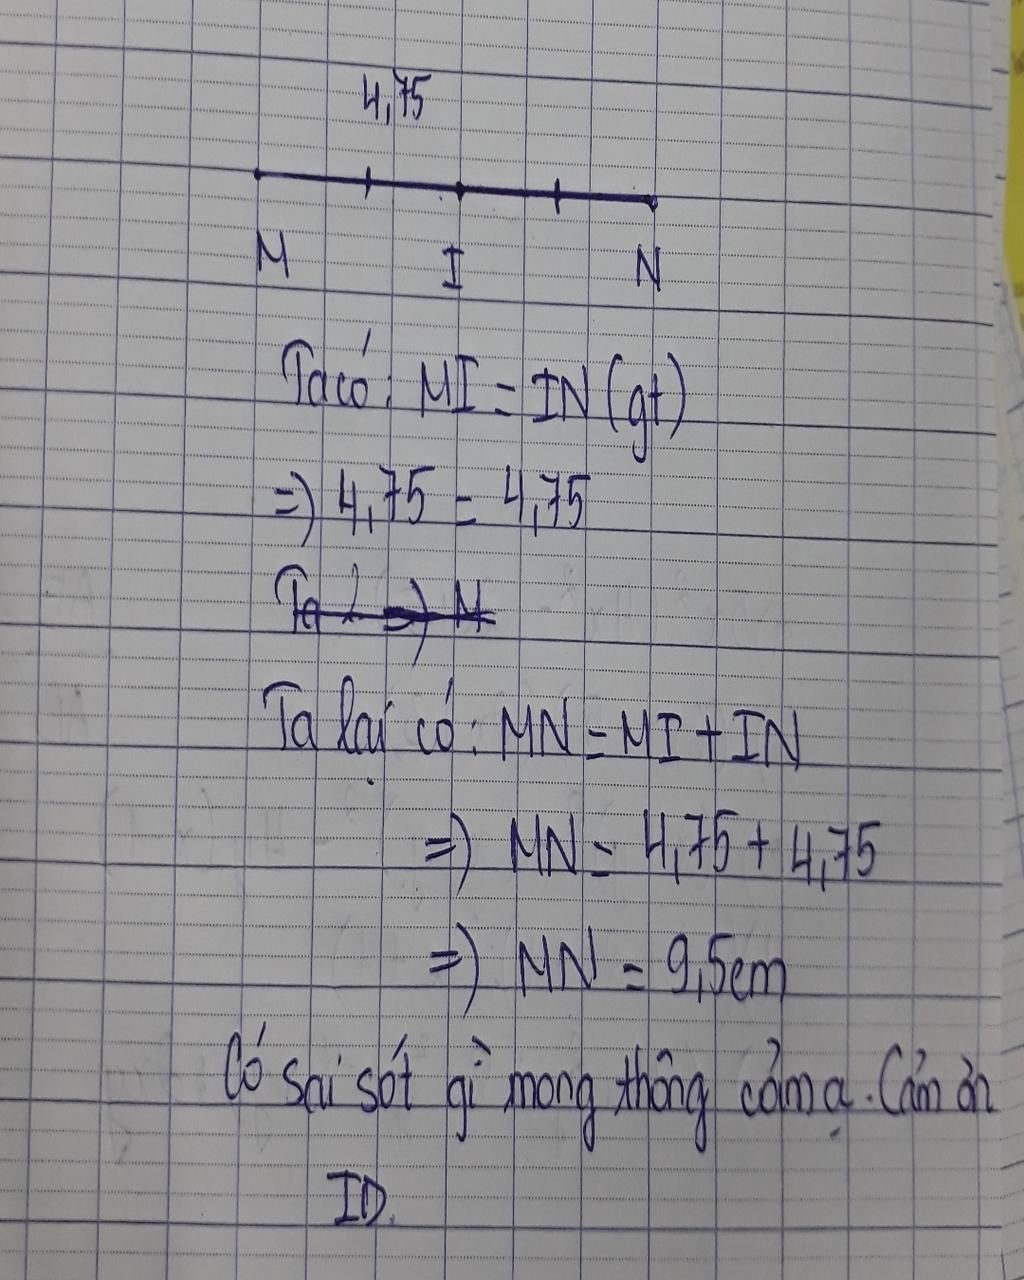 4,75
M I N
Ta có: MI = IN (gt)
=) 4,75 = 4,75
Ta lại có: MN = MI + IN
=) MN = 4,75 + 4,75
=) MN = 9,5cm
Có sai sót gì mong thông cảm ạ. Cảm ơn
ID.